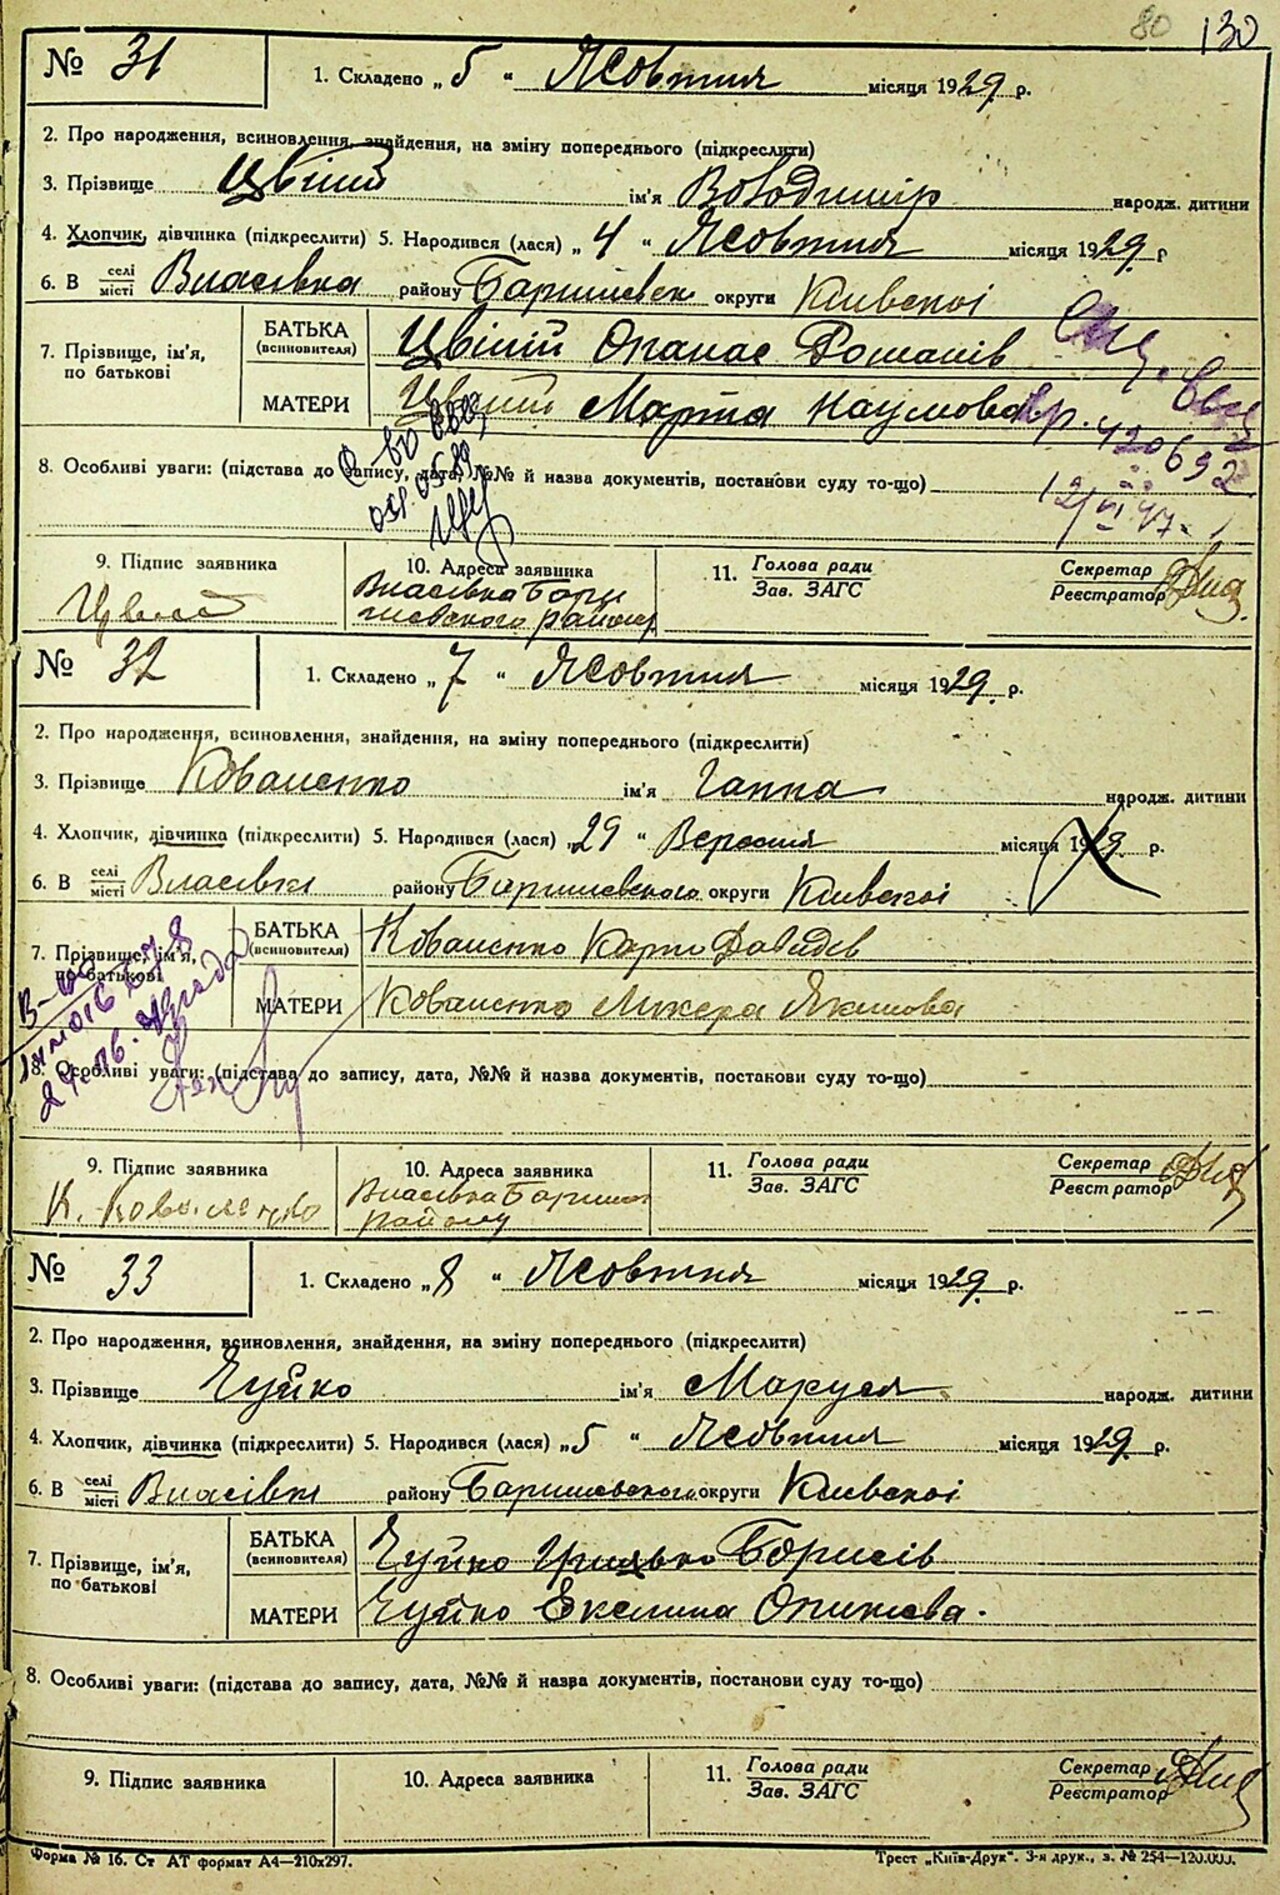 80 130
№ 31
1. Складено „ 5 “ Жовтня місяця 1929 р.
2. Про народження, всиновлення, знайдення, на зміну попереднього (підкреслити)
3. Прізвище Цвілий ім'я Володимир народж. дитини
4. Хлопчик, дівчинка (підкреслити) 5. Народився (лася) „ 4 “ Жовтня місяця 1929 р
6. В селі місті Власівка району Баришевск округи Киівскоі
7. Прізвище, ім'я, по батькові
БАТЬКА (всиновителя) Цвілій Опанас Романів
МАТЕРИ Цвілий Марта Наумова
8. Особливі уваги: (підстава до запису, дата, №№ й назва документів, постанови суду то-що)
420692
12/VI 47.
9. Підпис заявника
10. Адреса заявника
Власівка Бари
шевского району
11. Голова ради Зав. ЗАГС
Секретар Реєстратор
№ 32
1. Складено „ 7 “ Жовтня місяця 1929 р.
2. Про народження, всиновлення, знайдення, на зміну попереднього (підкреслити)
3. Прізвище Коваленко ім'я Ганна народж. дитини
4. Хлопчик, дівчинка (підкреслити) 5. Народився (лася) „29 “ Вересня місяця 1929 р.
6. В селі місті Власівка району Баришевского округи Киівскоі
7. Прізвище, ім'я, по батькові
БАТЬКА (всиновителя) Коваленко Карпо Давидів
МАТЕРИ Коваленко Якимова
8. Особливі уваги: (підстава до запису, дата, №№ й назва документів, постанови суду то-що)
9. Підпис заявника
К. Коваленко
10. Адреса заявника
Власівка Баришев
району
11. Голова ради Зав. ЗАГС
Секретар Реєстратор
№ 33
1. Складено „8 “ Жовтня місяця 1929 р.
2. Про народження, всиновлення, знайдення, на зміну попереднього (підкреслити)
3. Прізвище Чуйко ім'я Маруся народж. дитини
4. Хлопчик, дівчинка (підкреслити) 5. Народився (лася) „5 “ Жовтня місяця 1929 р.
6. В селі місті Власівка району Баришевского округи Киівскоі
7. Прізвище, ім'я, по батькові
БАТЬКА (всиновителя) Чуйко Грицько Борисів
МАТЕРИ Чуйко
8. Особливі уваги: (підстава до запису, дата, №№ й назва документів, постанови суду то-що)
9. Підпис заявника
10. Адреса заявника
11. Голова ради Зав. ЗАГС
Секретар Реєстратор
Форма № 16. Ст АТ формат А4—210х297.
Трест „Київ-Друк“. 3-я друк., з. № 254—120.000.